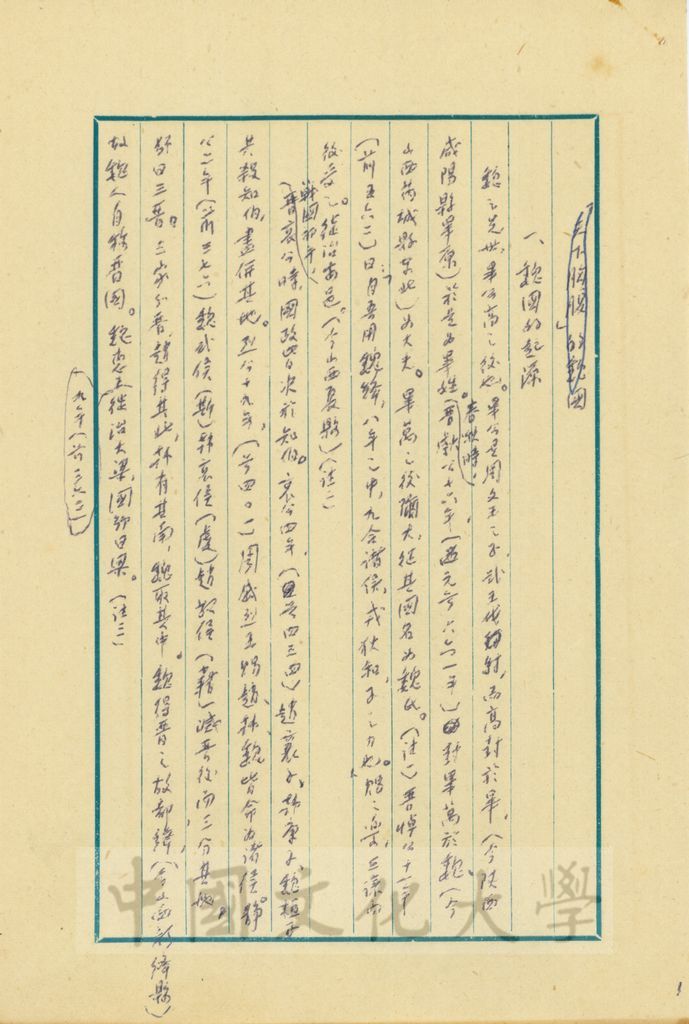 一、魏國的起源
魏之先世，畢公高之後也。畢公是周文王之子，武王伐紂，而高封於畢，（今陝西
咸陽縣畢原）於是為畢姓。春秋時，（晉獻公十六年（西元前六六一年）封畢萬於魏，（今
山西芮城縣東北）為大夫。畢萬之後彌大，從其國名為魏氏。（註一）晉悼公十一年
（前五六二）曰：自吾用魏絳，八年之中，九合諸侯，戎狄和，子之力也。賜之樂，三讓而
後受之。徙治安邑。（今山西夏縣）（註二）
戰國初年，（晉哀公時，國政皆決於知伯。哀公四年，（前四三四）趙襄子、韓康子、魏桓子
共殺知伯，盡併其地。烈公十九年，（前四〇一）周威烈王賜趙、韓、魏皆命為諸侯。靜
公二年（前三七六）魏武侯（斯）韓哀侯（虔）趙敬侯（藉）滅晉後而三分其地，
號曰三晉。三家分晉，趙得其北，韓有其南，魏取其中。魏得晉之故都絳，（今山西新絳縣）
故魏人自稱晉國。魏惠王徙治大梁，國號曰梁。（註三）
九年（前三六二）
中國文化大學